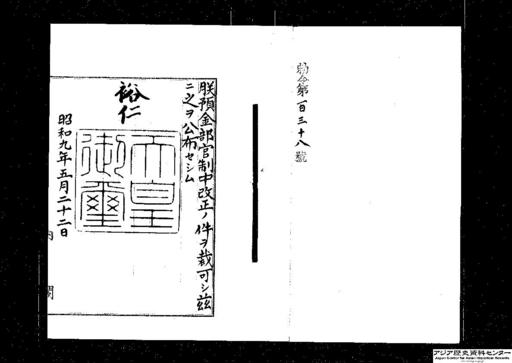 勅令第百三十八號
朕預金部官制中改正ノ件ヲ裁可シ茲
ニ之ヲ公布セシム
裕仁
天皇
御璽
昭和九年五月二十二日
内閣
アジア歴史資料センター
Japan Center for Asian Historical Records